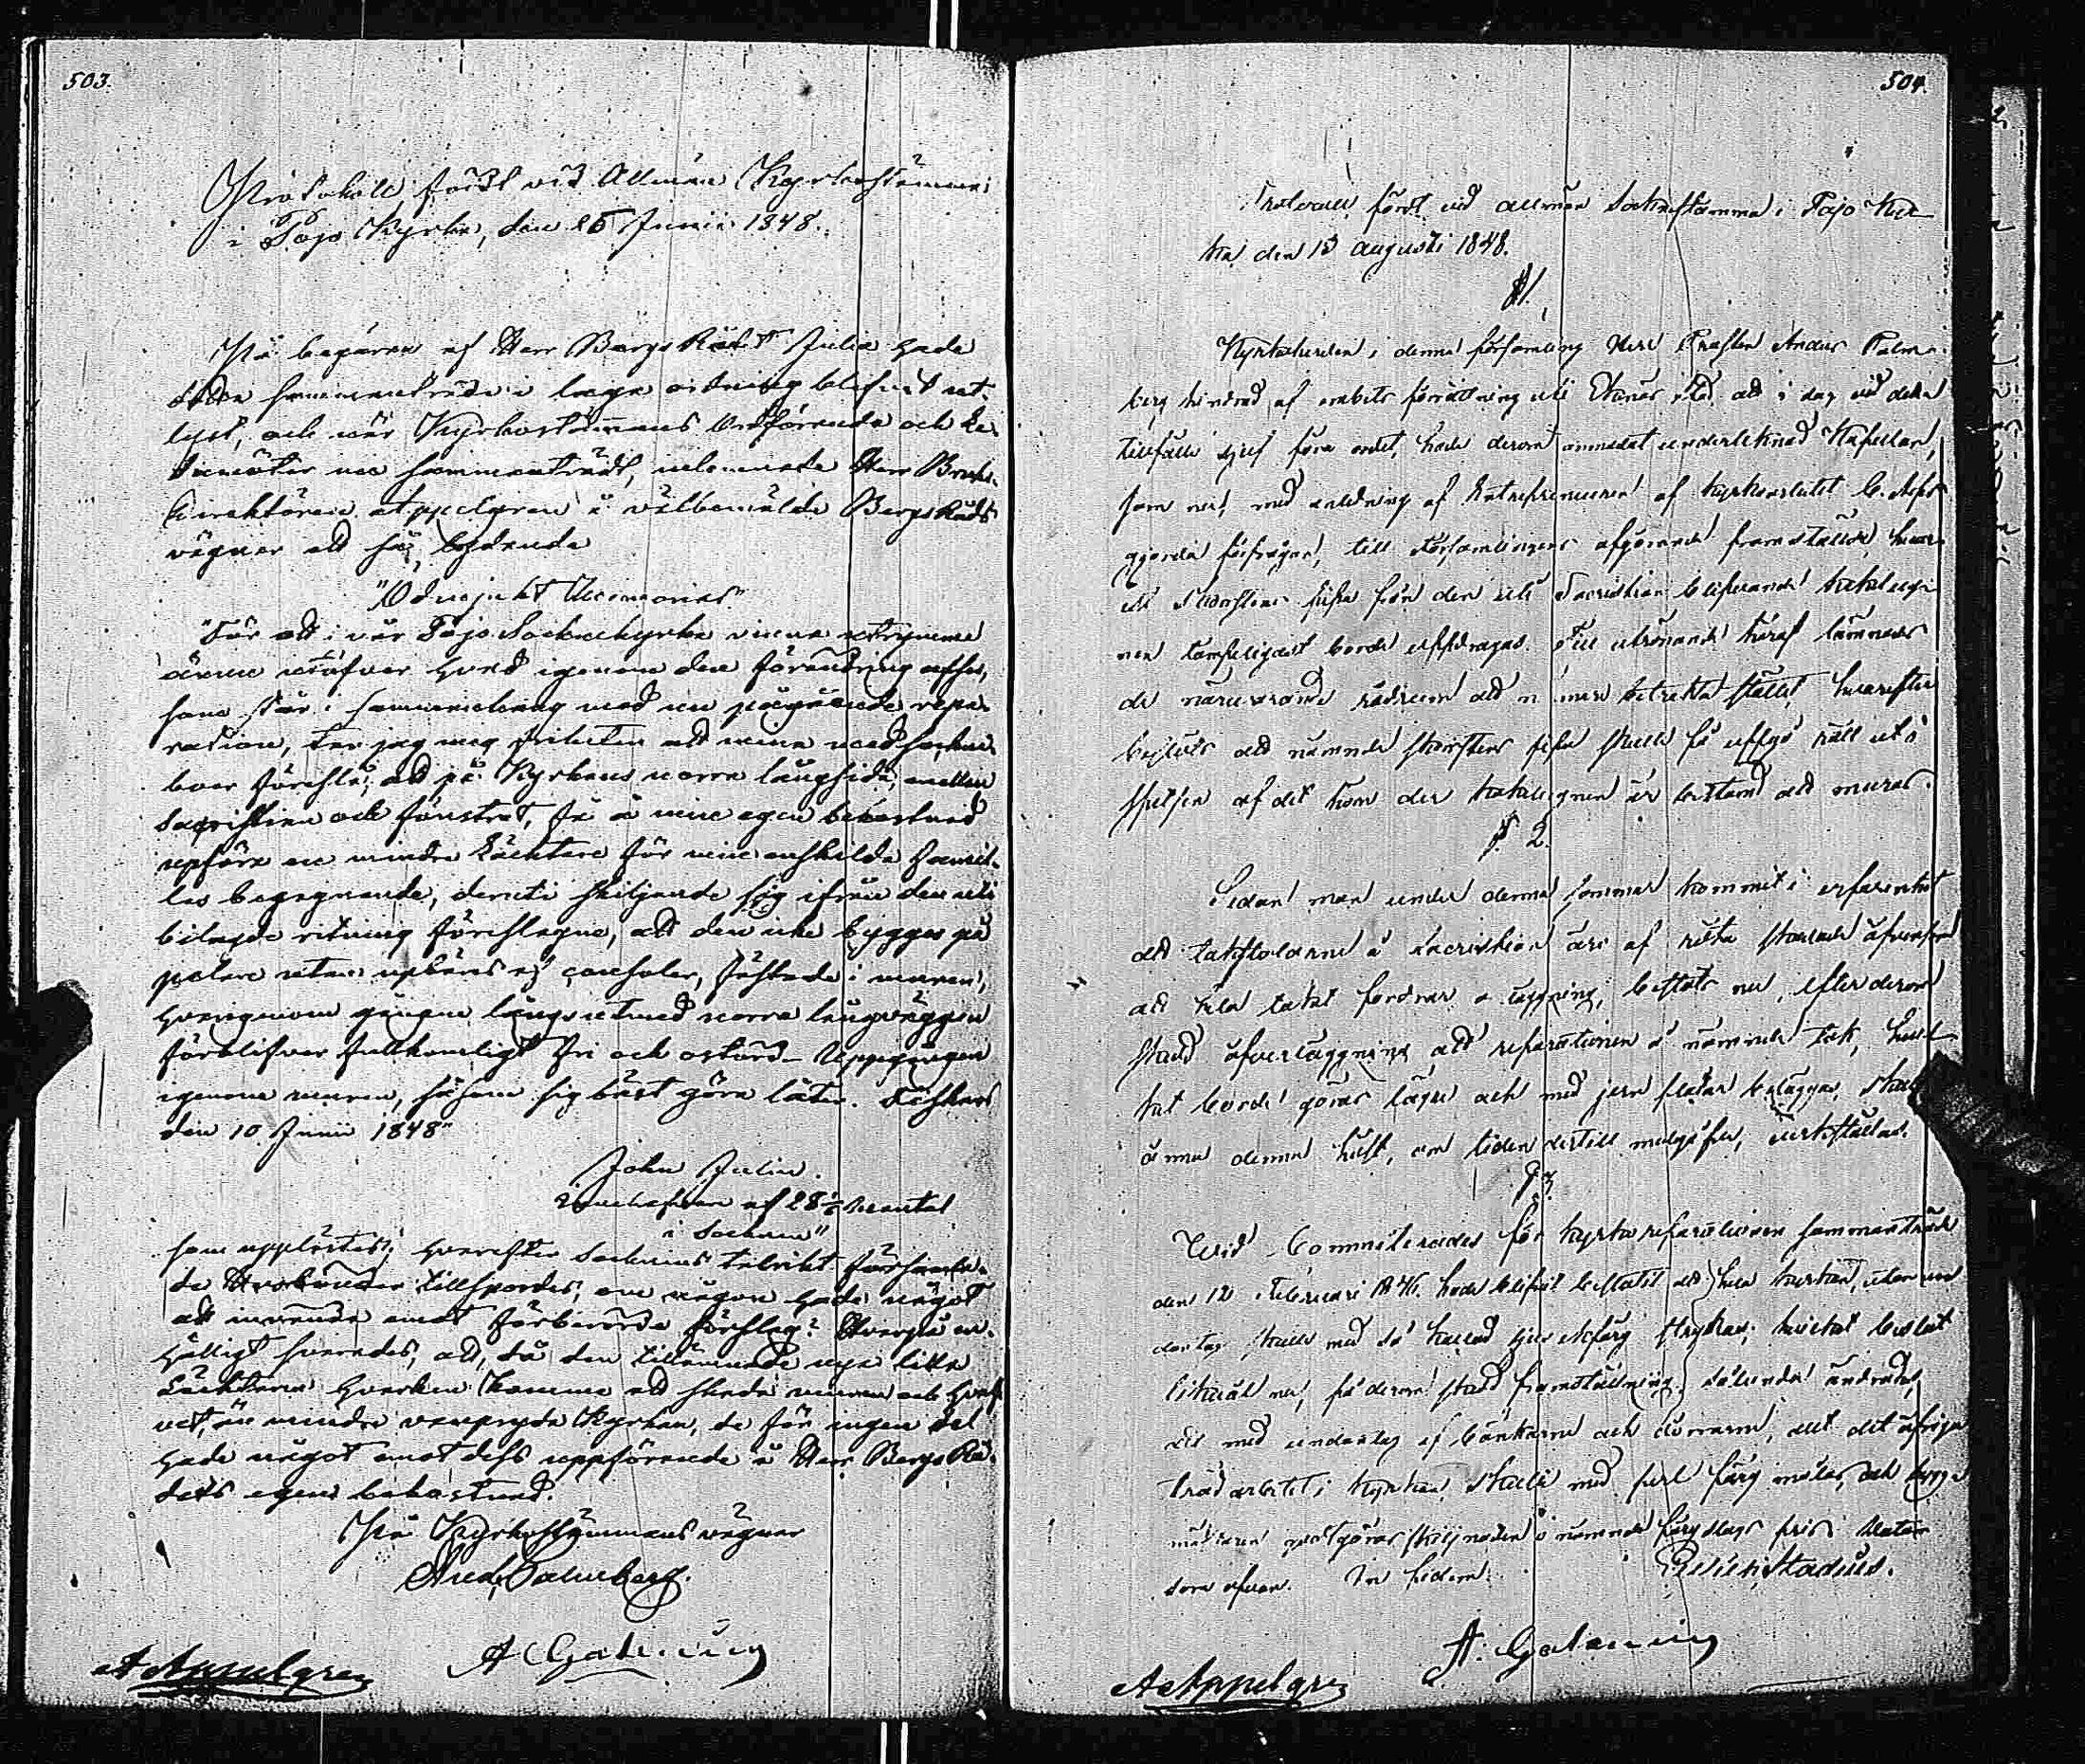 503.
Protokoll fördt vid Allmän Kyrkostämma
i Pojo Kyrka, den 25 Junii 1848.
På begäran af Herr Bergs Rådet Julin hade
detta sammanträde i laga ordning blifvit ut-
lyst, och när Kyrkostämmans Ordförande och Le-
damöter nu sammanträdt, inlemnade Herr Bruks-
Direktören Appelgren å välbemälde Bergs Råds
vägnar ett så lydande
"Ödmjukt Memorial"
"För att i vår Pojo Sockne kyrka vinna utrymme
ännu utöfver hvad igenom den förändring
som står i sammanhang med nu pågående repa-
ration, tar jag mig friheten att mina med sockne-
boer föreslå; att på Kyrkans norra långsida, mellan
Sacristian och fönstret, få å min egen bekostnad
uppföra en mindre Läcktare för min enskilda famil-
les begagnande, deruti skiljande sig ifrån den uti
bilagde ritning föreslagne, att den icke bygges på
pelare utan uppbäres af consoler, fästade i muren,
hvarigenom gången längs utmed norra långväggen
förblifver fullkomligt fri och ostörd. Uppgången
igenom muren, såsom sig bäst göra låter. Fiskars
den 10 Junii 1848"
John Julin.
Innehafvare af 28 ½ Mantal
i Socknen"
som upplästes; hvarefter Socknens talrikt församla-
de tillspordes, om någon hade något
att invända emot förberörde förslag? Hvarpå en-
hälligt svarades, att, då den tillämnade nya lilla
Läcktaren hvarken komme att skada muren och hvalf-
vet, än mindre vanpryda Kyrkan, de för ingen del
hade något emot dess uppförande å Herr Bergs Rå-
dets egen bekostnad.
På Kyrkostämmans vägnar
And. Palmberg.
A Galenius
A Appelgren
504.
Protocoll fördt vid allmän Sockenstämma i Pojo Kyr-
ka den 13 augusti 1848.
§ 1.
Kyrkoherden i denna församling Herr Prosten Anders Palm-
berg hindrad af embets förrättning uti Ekenäs stad att i dag vid detta
tillfälle sjelf föra ordet, hade derom anmodat undertecknad Kapellan,
som nu, med anledning af Entreprenneuren af kyrkoarbetet
gjorda förfrågan, till Församlingens afgörande framställde, huru-
från den uti Sacristian blifvande kakelugn-
nen lämpeligast borde uppdragas. Till utrönande häraf lämnades
de närvarande rådrum att närmare betrakta stället, hvarefter
beslöts att nämnde skorstens pipa skulle få uppgå rätt ut i
spetsen af det hörn der kakelugnen är bestämd att muras.
§ 2.
Sedan man under denna sommar kommit i erfarenhet
att takstolarne å Sacristian äro af röta skadade äfvensom
att hela taket fordrar omläggning, beslöts nu, efter derom
skedd öfverläggning att reparationen å nämnde tak, hvil-
ket borde göras lägre och med jern plåtar beläggas, skulle
ännu denna höst, om tiden dertill medgåfve, verkställas.
§ 3.
Wid Committerades för kyrko reparationen sammanträde
den 12 Februari hade blifvit beslutit att hela kyrkan, utan un-
dantag skulle med så kallad färg strykas; hvilket beslut
likväl nu, på derom skedd framställning, sålunda ändrades,
att med undantag af bänkarne och dörrarne, allt det öfriga
träd arbetet i kyrkan skulle med perl färg målas, och bygg-
mästaren godtgöras skillnaden i nämnde färgslags pris. Datum
som ofvan. In fidem:
A. Galenius
A Appelgren